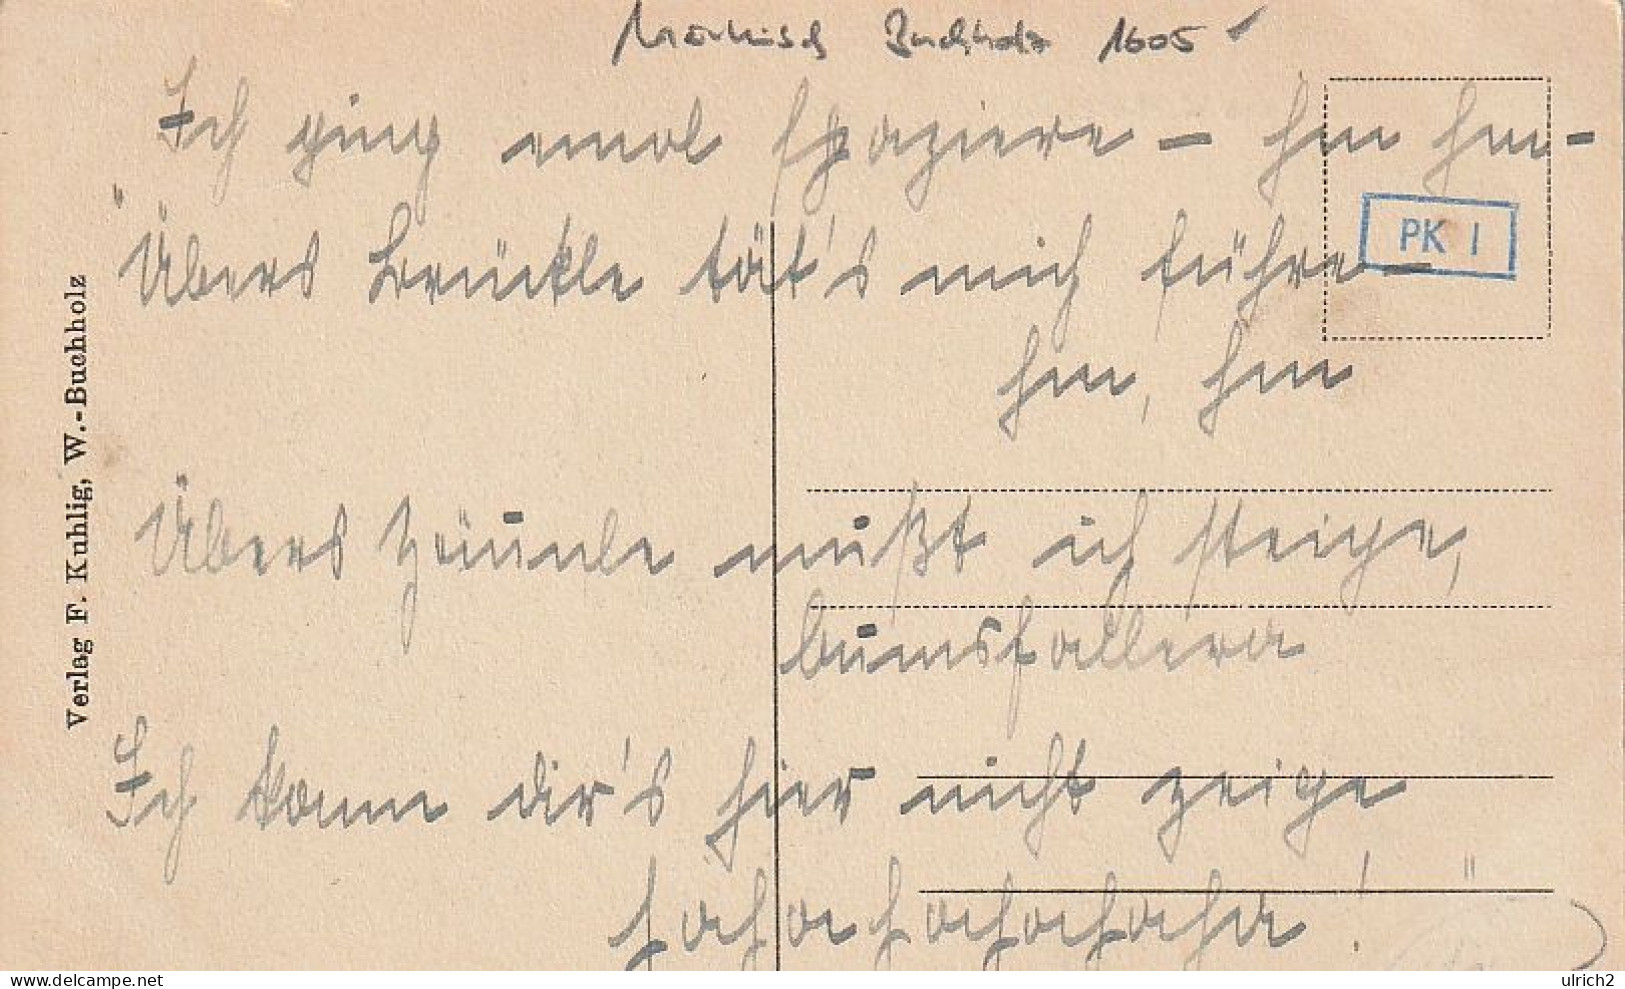 Märkisch Buchholz 1605
Ich ging emol spaziere – hm hm –
"Übers Brückle tät's mich führe –
PK I
hm, hm
Übers Zäunle mußt ich steige,
bumsfallera
Ich kann dir's hier nicht zeige
hahahahahahaha! "
Verlag F. Kuhlig, W.-Buchholz
delcampe.net
ulrich2